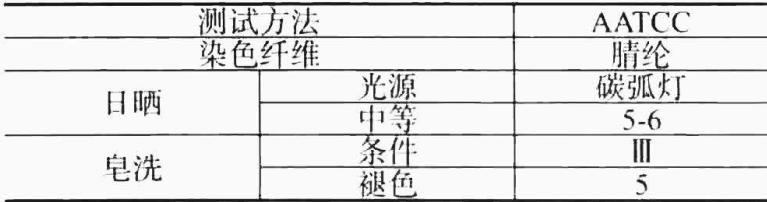 测试方法 AATCC
染色纤维 腈纶
日晒 光源 碳弧灯
中等 5-6
皂洗 条件 Ⅲ
褪色 5